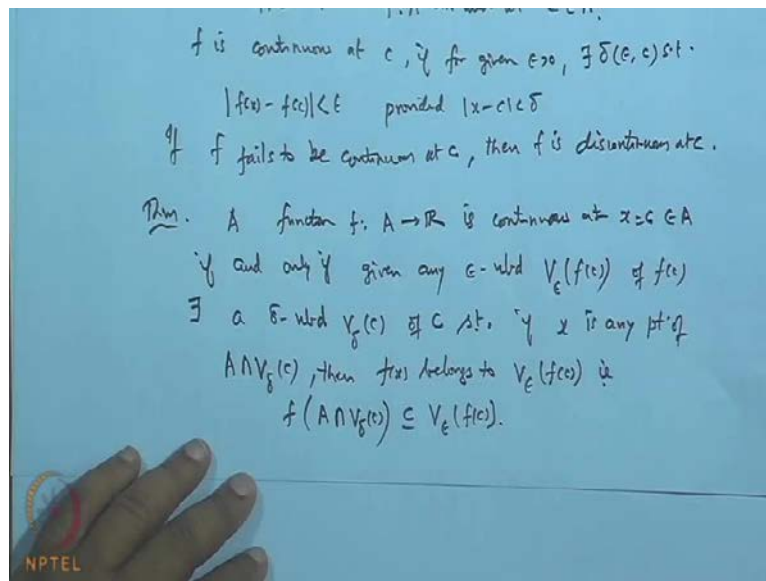 f is continuous at c, if for given ε>0, ∃ δ(ε, c) s.t.
|f(x) - f(c)| < ε provided |x-c| < δ
If f fails to be continuous at c, then f is discontinuous at c.
Thm. A function f: A → R is continuous at x=c ∈ A
if and only if given any ε-nbd V_ε(f(c)) of f(c)
∃ a δ-nbd V_δ(c) of c s.t. if x is any pt. of
A∩V_δ(c), then f(x) belongs to V_ε(f(c)) ie
f(A∩V_δ(c)) ⊆ V_ε(f(c)).
NPTEL